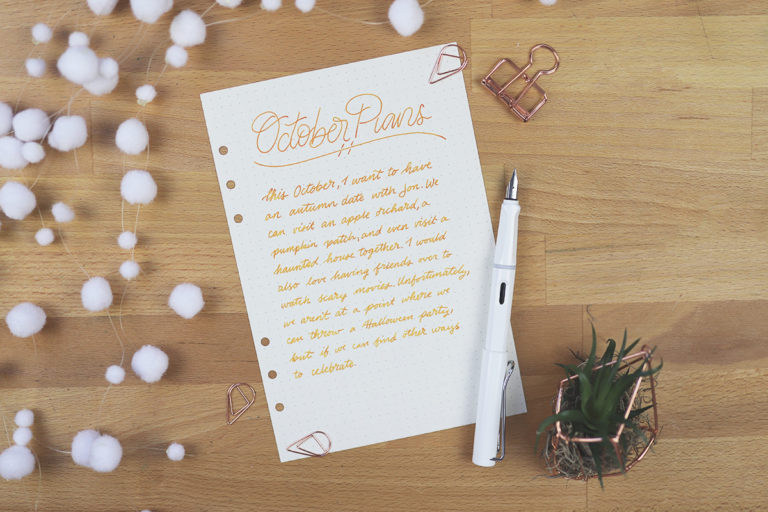 October Plans
This October, I want to have
an autumn date with Jon. We
can visit an apple orchard, a
pumpkin patch, and even visit a
haunted house together. I would
also love having friends over to
watch scary movies. Unfortunately,
we aren't at a point where we
can throw a Halloween party,
but if we can find other ways
to celebrate.